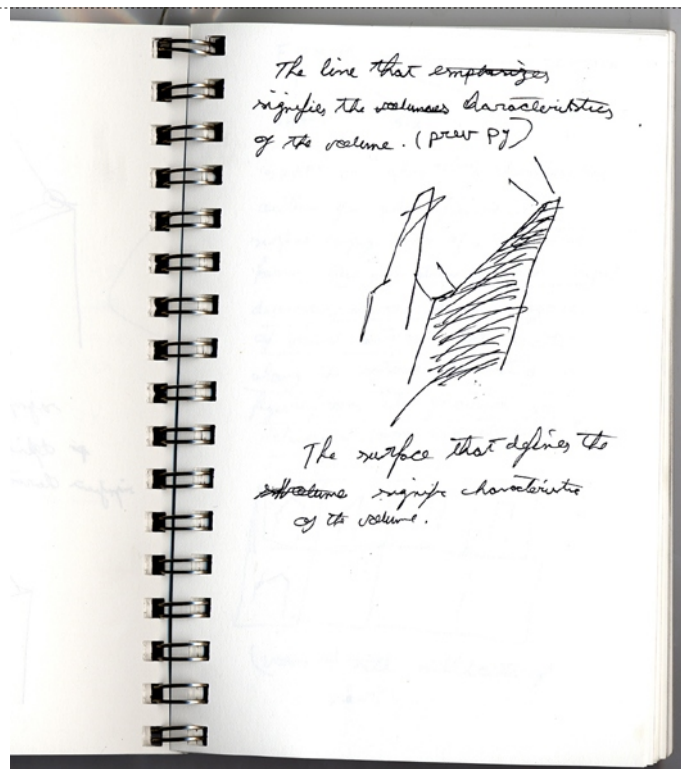 The line that emphasizes
signifies the volumes characteristics
of the volume. (prev pg)
The surface that defines the
volume signify characteristic
of the volume.